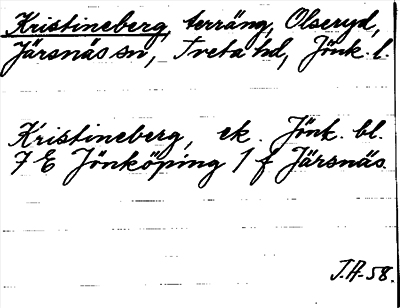 Kristineberg, terräng, Olseryd,
Järsnäs sn, Tveta hd, Jönk. l.
Kristineberg, ek. Jönk. bl.
7 E Jönköping 1 f Järsnäs.
J.A-58.